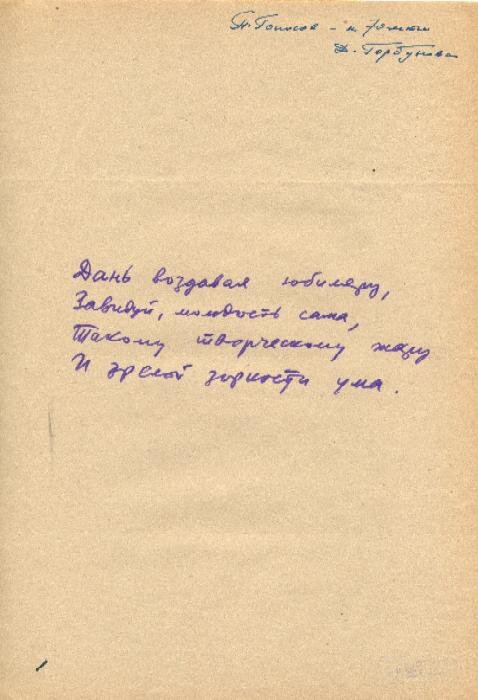 Д. Горбунова
Дань воздавая юбиляру,
Завидуй, молодость сама,
Такому творческому жару
И зрелой зоркости ума.